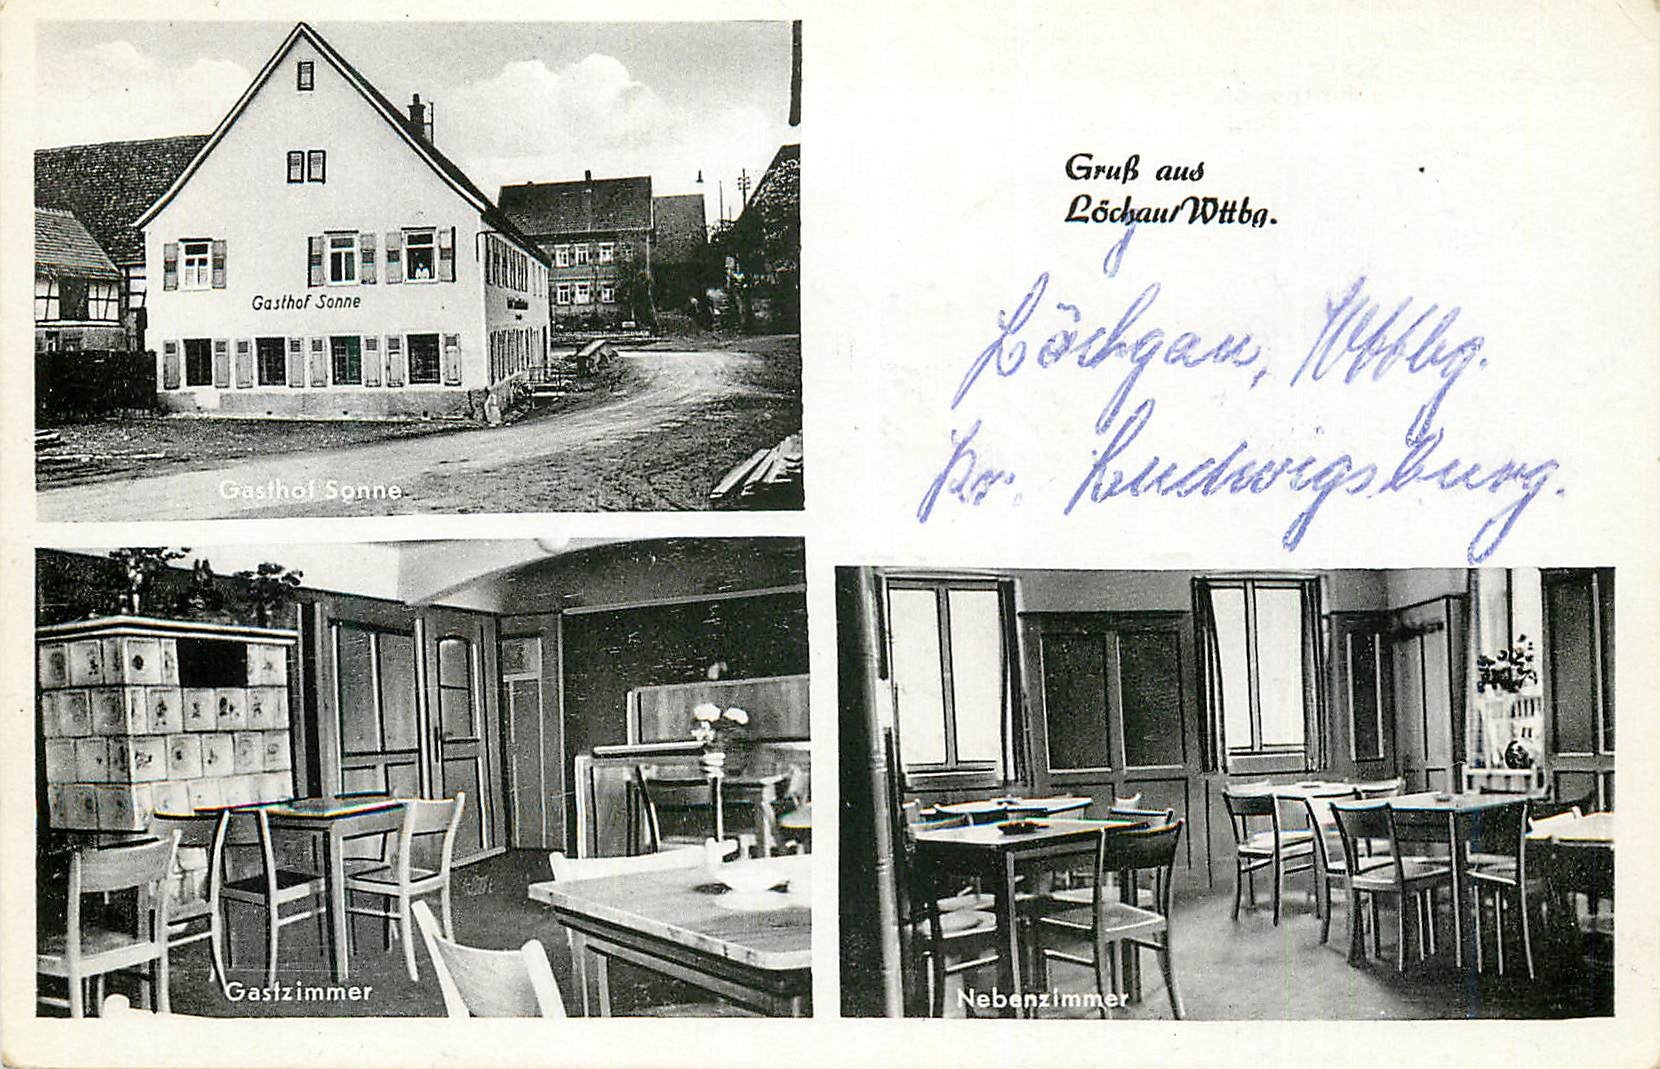 Gasthof Sonne
Gasthof Sonne
Gruß aus
Löchau/Wttbg.
Löchgau, Wttbg.
Kr. Ludwigsburg.
Gastzimmer
Nebenzimmer